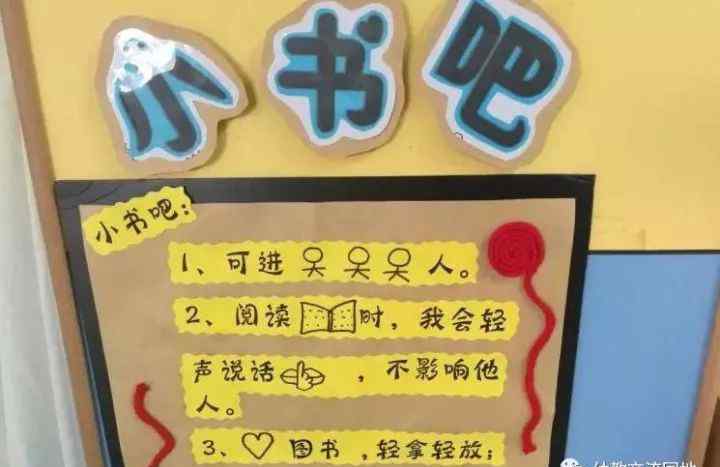 小书吧
小书吧:
1、可进 人。
2、阅读 时，我会轻
声说话 ，不影响他
人。
3、 图书，轻拿轻放；